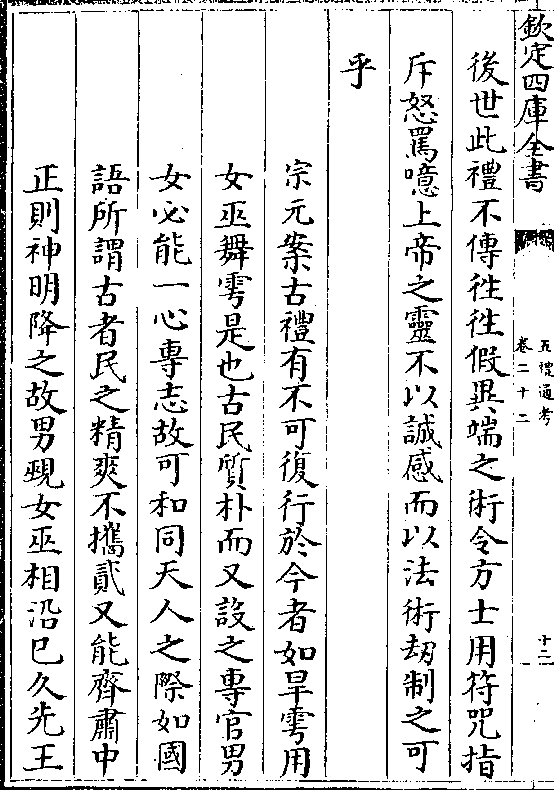 欽定四庫全書
五禮通考
卷二十二
十二
後世此禮不傳徃徃假異端之術令方士用符咒指
斥怒罵噫上帝之靈不以誠感而以法術刼制之可
乎
宗元案古禮有不可復行於今者如旱雩用
女巫舞雩是也古民質朴而又設之專官男
女必能一心專志故可和同天人之際如國
語所謂古者民之精爽不攜貳又能齊肅中
正則神明降之故男覡女巫相沿已久先王